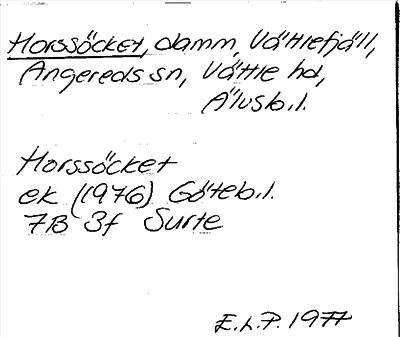 Horssöcket, damm, Vättlefjäll,
Angereds sn, Vättle hd,
Älvsb.l.
Horssöcket
ek (1976) Göteb.l.
7B 3f Surte
E.L.P. 1977